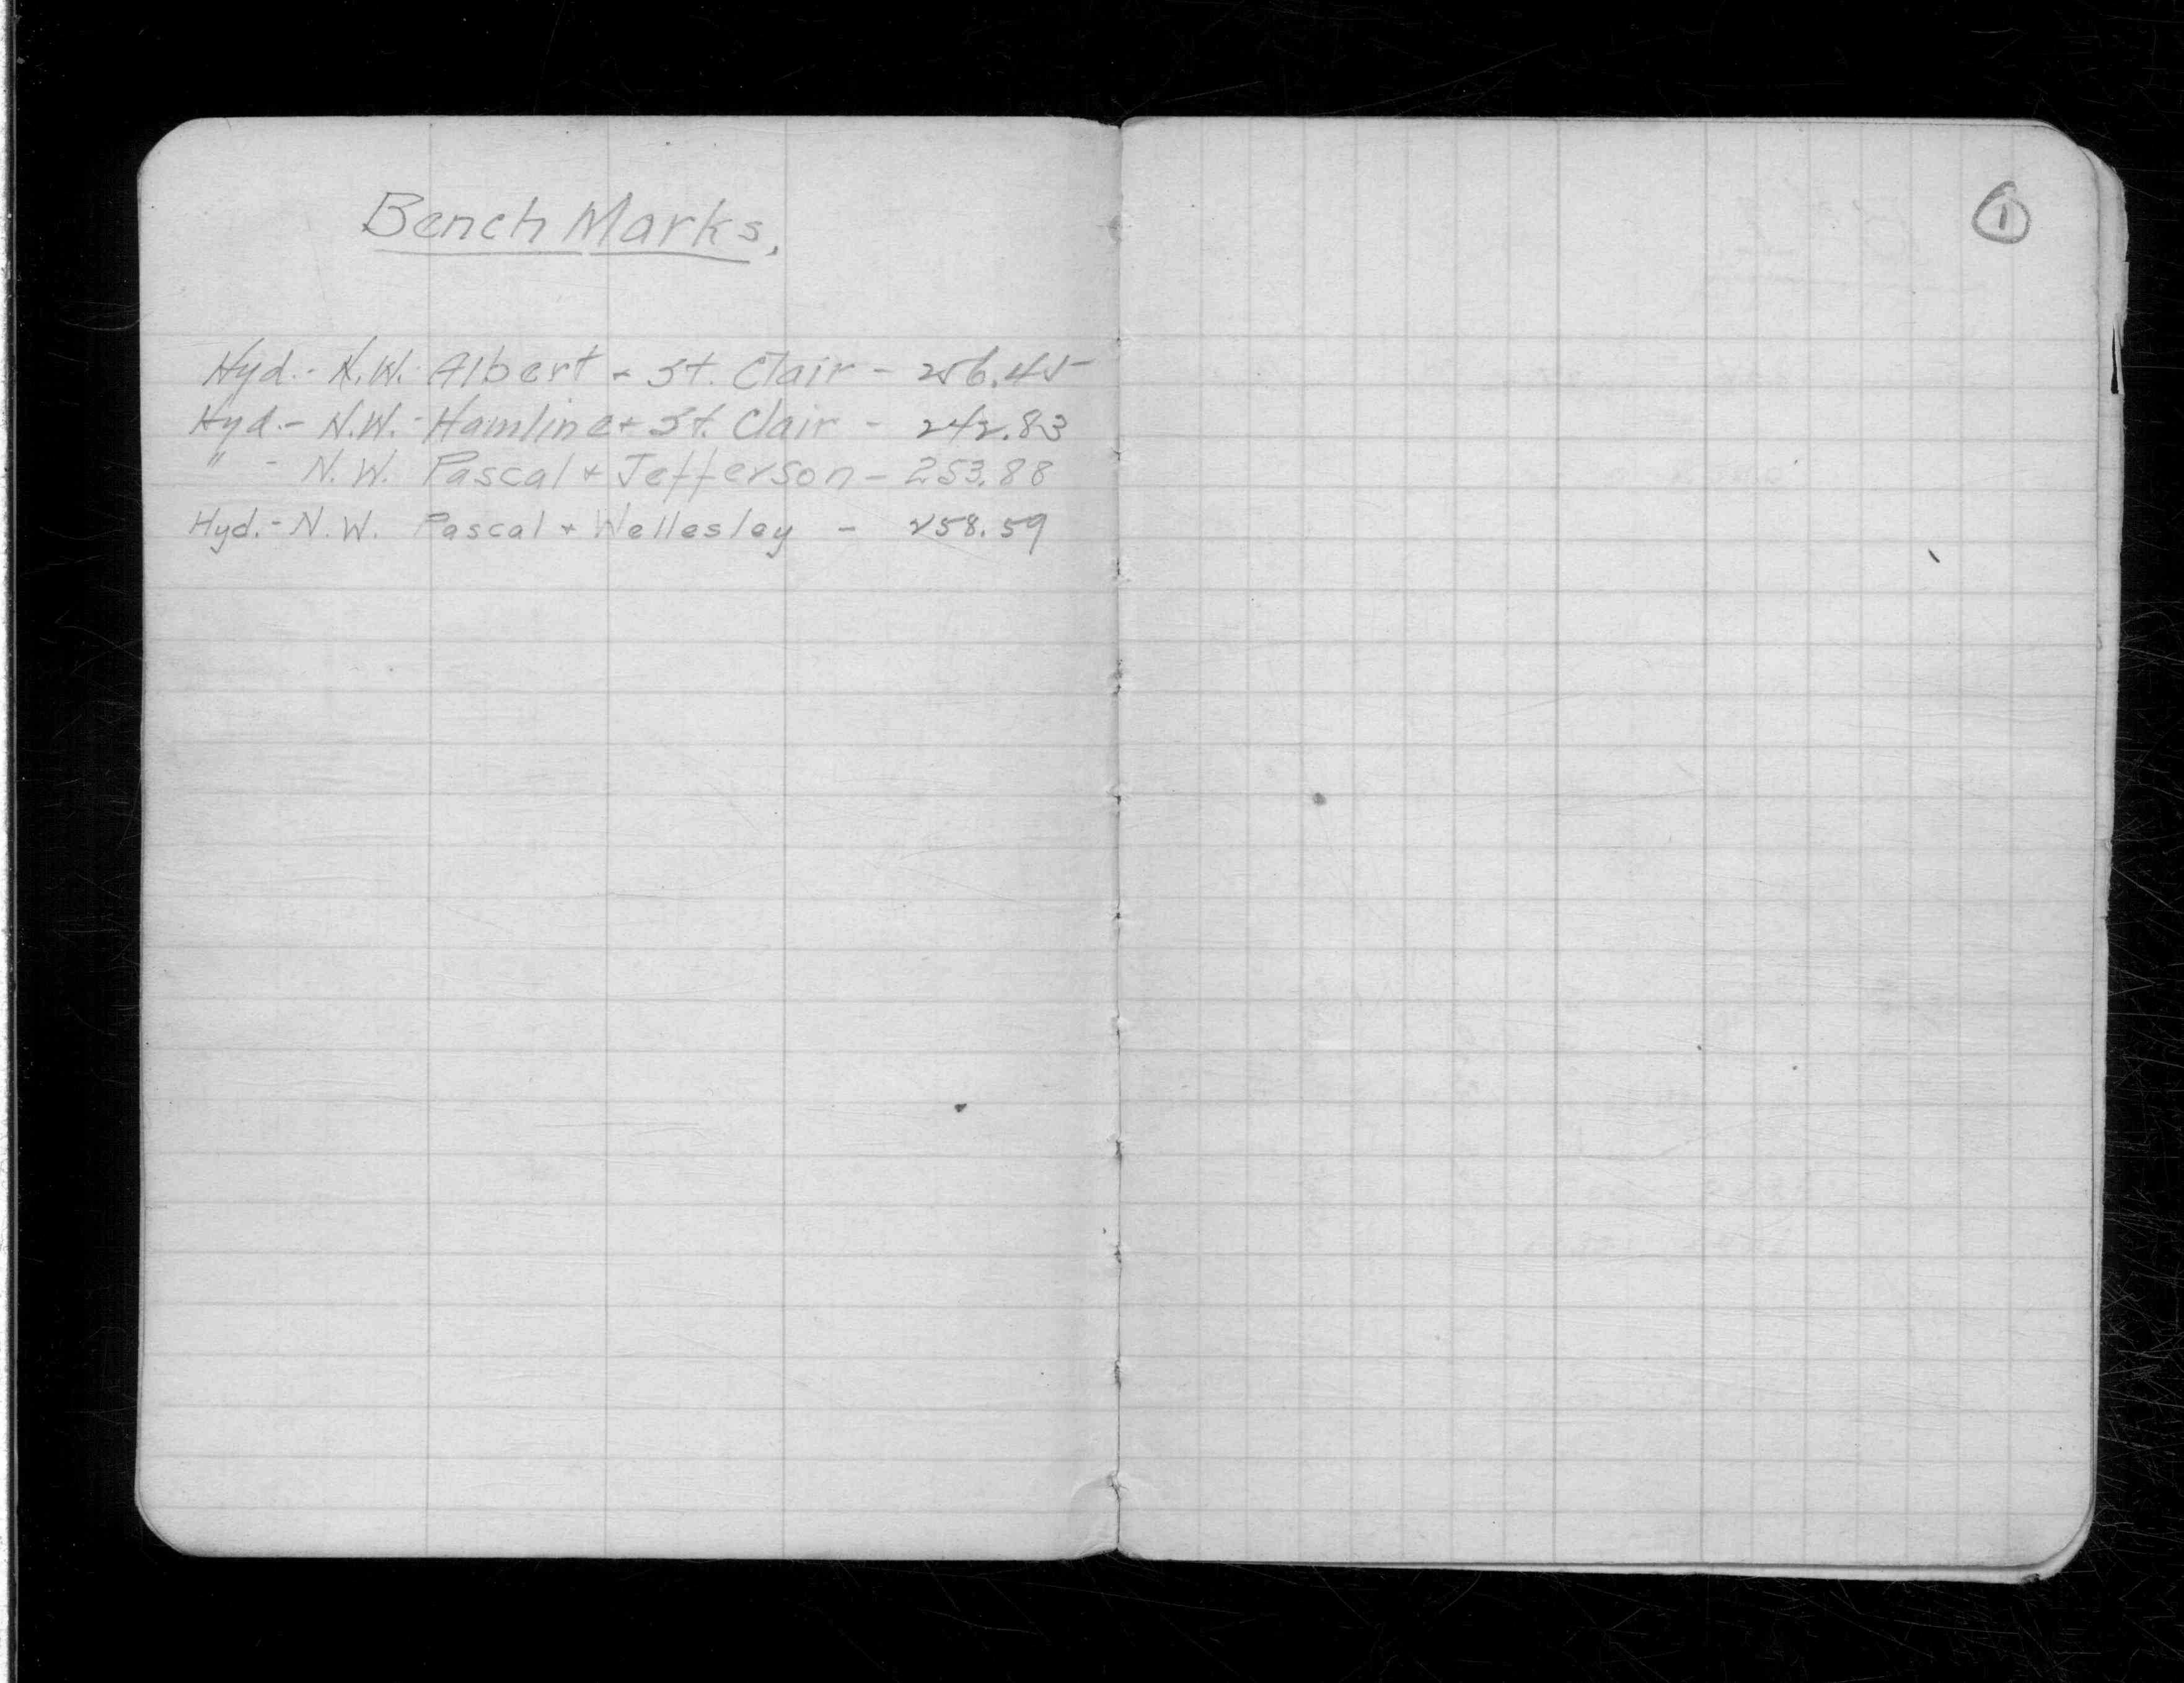 Bench Marks.
1
Hyd.- N.W. Albert + St. Clair - 256.45
Hyd.- N.W.- Hamline + St. Clair - 242.83
" - N.W. Pascal + Jefferson - 253.88
Hyd.- N.W. Pascal + Wellesley - 258.59